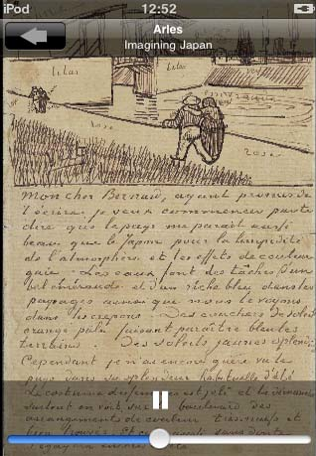 iPod
12:52
Arles
Imagining Japan
lilas
lilas
rose
rose
Mon cher Bernard, ayant promis de
t'écrire je veux commencer par te
dire que le pays me parait aussi
beau que le Japon pour la limpidité
de l'atmosphère et les effets de couleur
gaie. Les eaux font des taches d'un
bel émeraude et d'un riche bleu dans les
paysages ainsi que nous le voyons
dans les crepons. Des couchers de soleil
orangé pâle faisant paraître bleu les
terrains. Des soleils jaunes splendides.
Cependant je n'ai encore guère vu le
pays dans sa splendeur habituelle d'été
Le costume des femmes est joli et le dimanche
surtout on voit sur le boulevard des
arrangements de couleur très naïfs et
bien trouvés. Et cela aussi sans doute